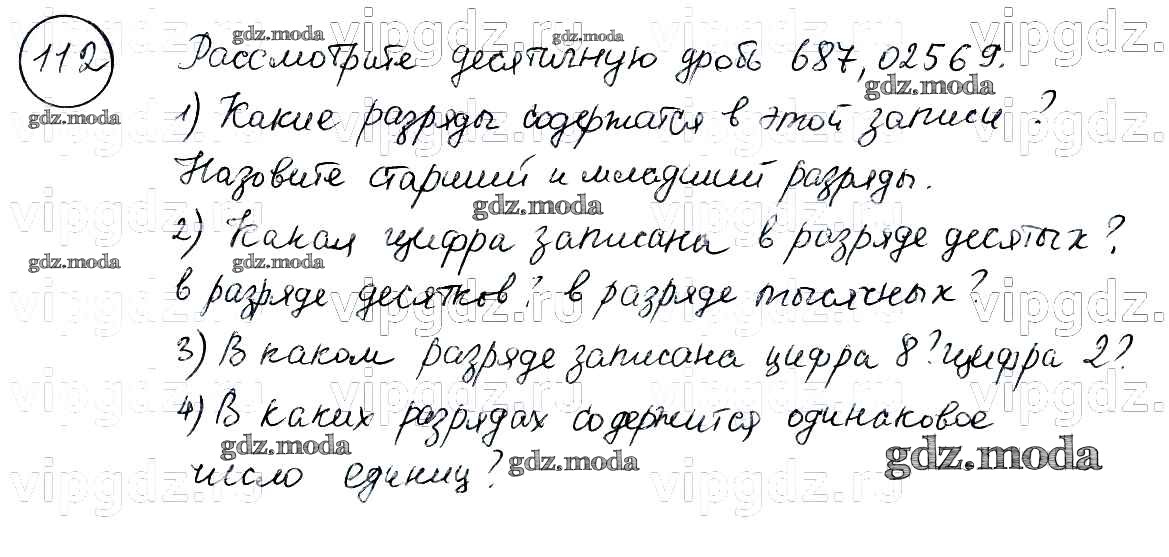 112 Рассмотрите десятичную дробь 687,02569.
1) Какие разряды содержатся в этой записи?
Назовите старший и младший разряды.
2) Какая цифра записана в разряде десятых?
в разряде десятков? в разряде тысячных?
3) В каком разряде записана цифра 8? цифра 2?
4) В каких разрядах содержится одинаковое
число единиц?
gdz.moda
vipgdz.ru